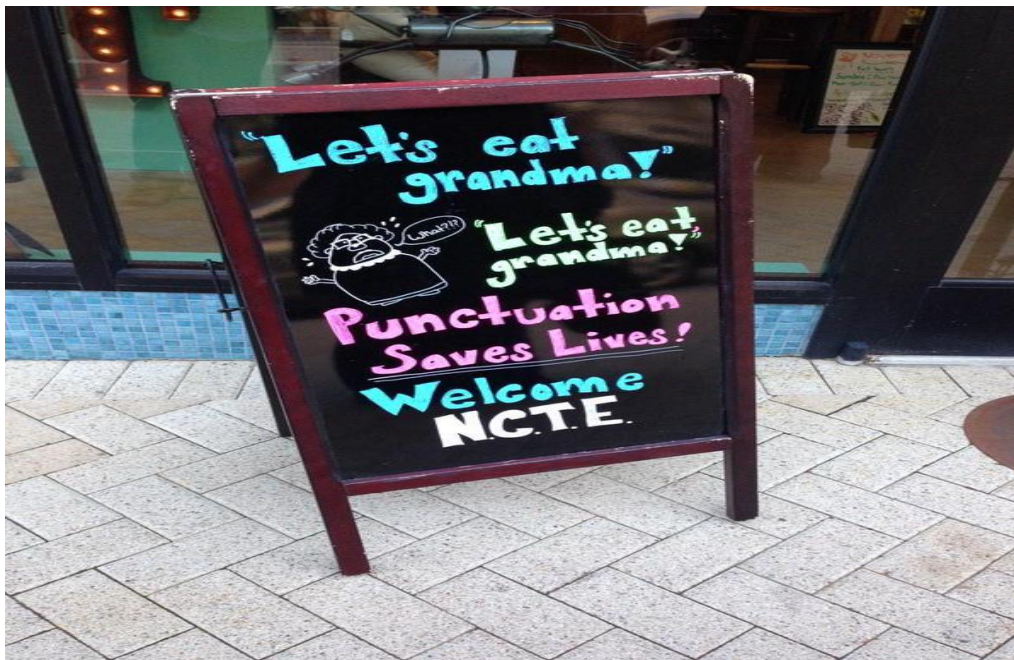 "Let's eat
grandma!"
What?!?
"Let's eat,
grandma!"
Punctuation
Saves Lives!
Welcome
N.C.T.E.